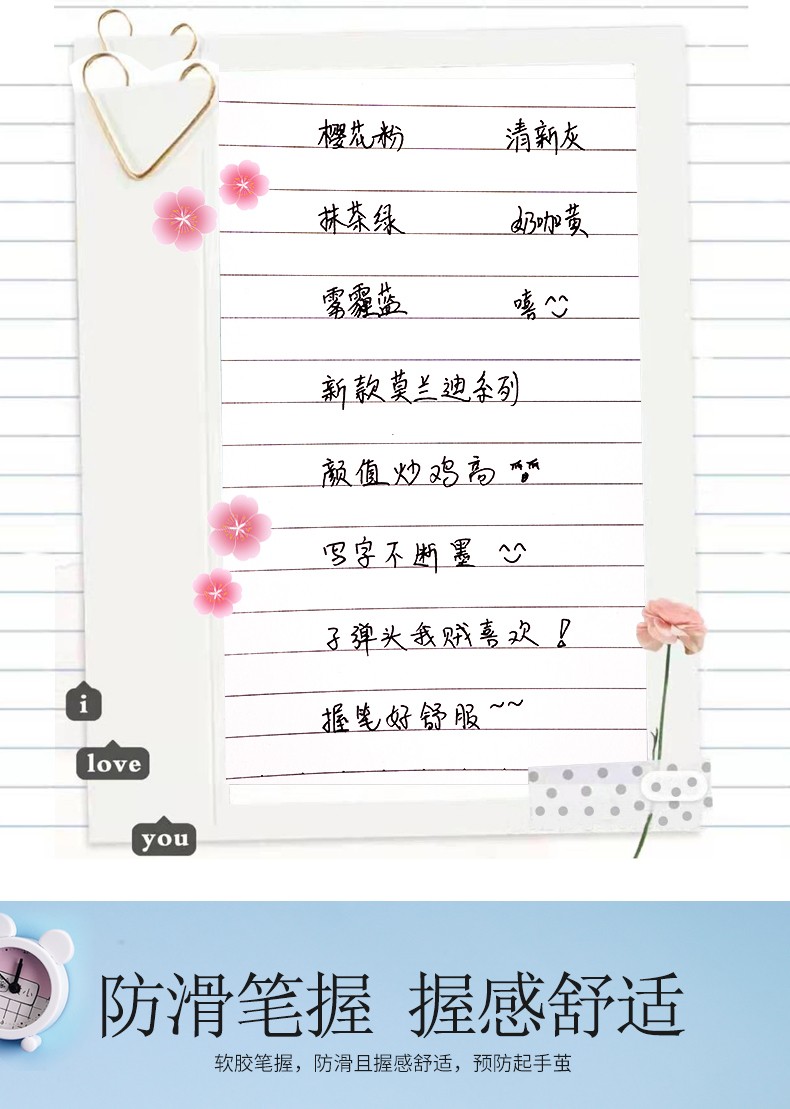 樱花粉 清新灰
抹茶绿 奶咖黄
雾霾蓝 嘻
新款莫兰迪系列
颜值炒鸡高
写字不断墨
子弹头我贼喜欢！
握笔好舒服~~
i
love
you
防滑笔握 握感舒适
软胶笔握，防滑且握感舒适，预防起手茧